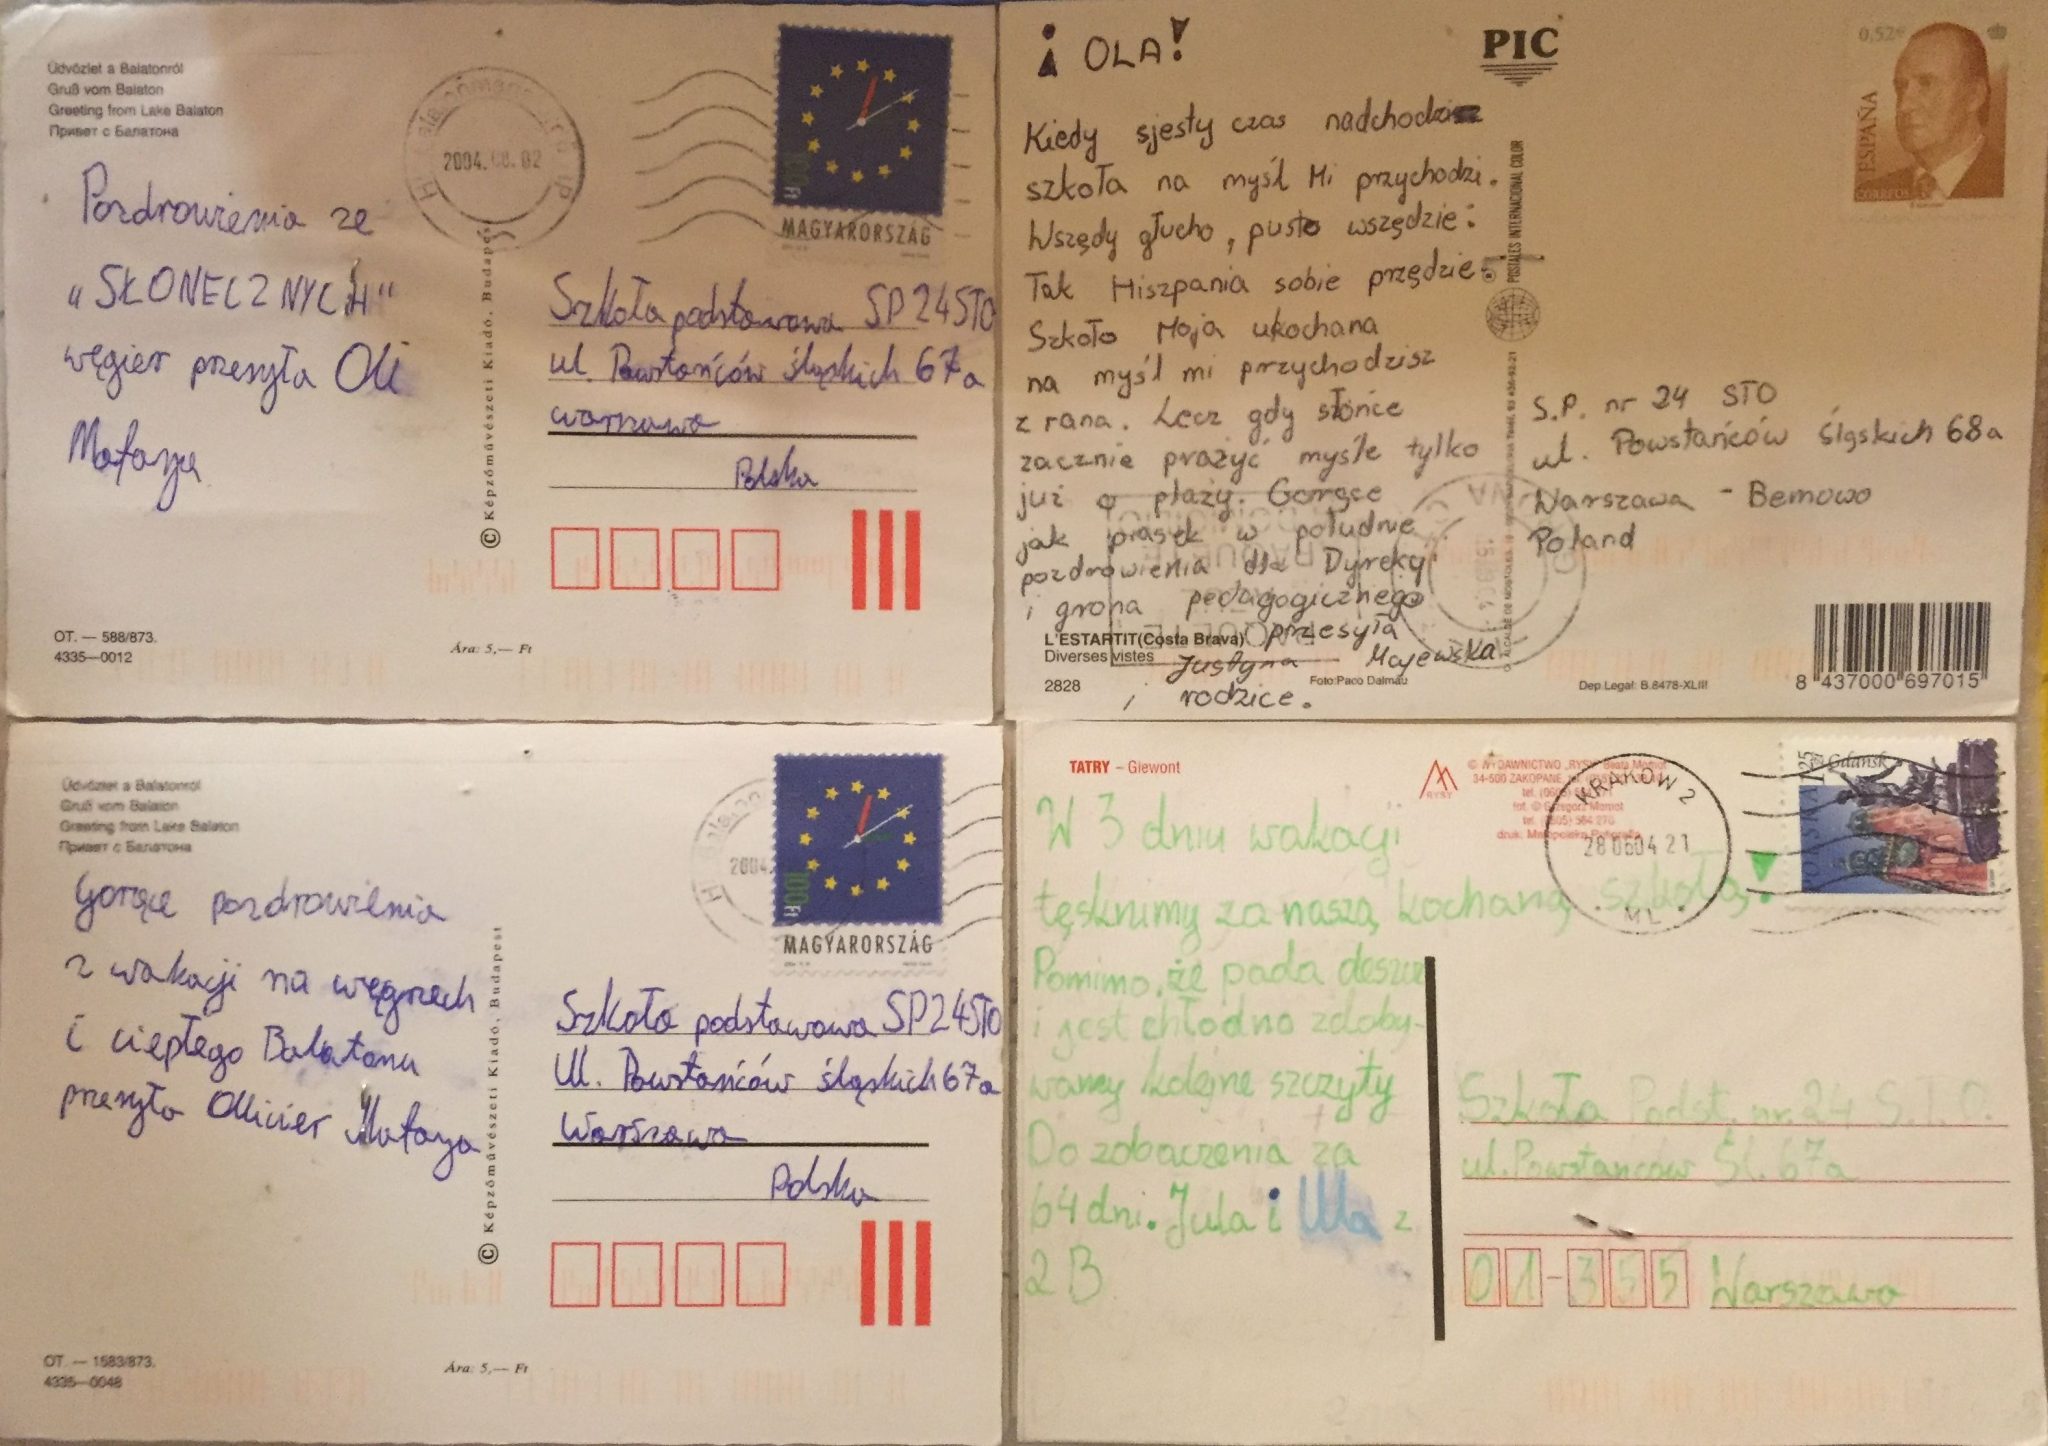 Üdvözlet a Balatonról
Gruß vom Balaton
Greeting from Lake Balaton
Привет с Балатона
2004. 02
MAGYARORSZÁG
Pozdrowienia ze
"SŁONECZNYCH"
węgier przesyła Oli
Mataya
© Képzőművészeti Kiadó, Budapest
Szkoła podstawowa SP24STO
ul. Powstańców śląskich 67a
warszawa
Polska
OT. — 588/873.
4335—0012
Ára: 5,— Ft
¡OLA!
PIC
0,52€
ESPAÑA
CORREOS
Kiedy sjesty czas nadchodzi
szkoła na myśl Mi przychodzi.
Wszędy głucho, pusto wszędzie:
Tak Hiszpania sobie przędzie.
Szkoło Moja ukochana
na myśl mi przychodzisz
z rana. Lecz gdy słońce
zacznie prażyć myśle tylko
już o plaży. Gorące
jak piasek w południe
pozdrowienia dla Dyrekcji
i grona pedagogicznego
przesyła
Justyna Majewska
i rodzice.
POSTALES INTERNACIONAL COLOR
S.P. nr 24 STO
ul. Powstańców śląskich 68a
Warszawa - Bemowo
Poland
L'ESTARTIT(Costa Brava)
Diverses vistes
2828
Foto:Paco Dalmau
Dep.Legal: B.8478-XLIII
8 437000 697015
Üdvözlet a Balatonról
Gruß vom Balaton
Greeting from Lake Balaton
Привет с Балатона
2004.
100 Ft
MAGYARORSZÁG
Gorące pozdrowienia
z wakacji na węgrzech
i ciepłego Balatonu
przesyła Olliwier Mataya
© Képzőművészeti Kiadó, Budapest
Szkoła podstawowa SP24STO
Ul. Powstańców śląskich 67a
Warszawa
Polska
OT. — 1583/873.
4335—0048
Ára: 5,— Ft
TATRY – Giewont
RYSY
© WYDAWNICTWO „RYSY” Beata Momot
34-500 ZAKOPANE
fot. © Grzegorz Momot
druk. Małopolska Poligrafia
KRAKÓW 2
28 06 04 21
ML
Gdańsk
POLSKA 1,25
W 3 dniu wakacji
tęsknimy za naszą kochaną szkołą!
Pomimo, że pada deszcz
i jest chłodno zdoby-
wamy kolejne szczyty
Do zobaczenia za
64 dni. Jula i Ula z
2B
Szkoła Podst. nr. 24 S.T.O.
ul. Powstańców Śl. 67a
01-355 Warszawa